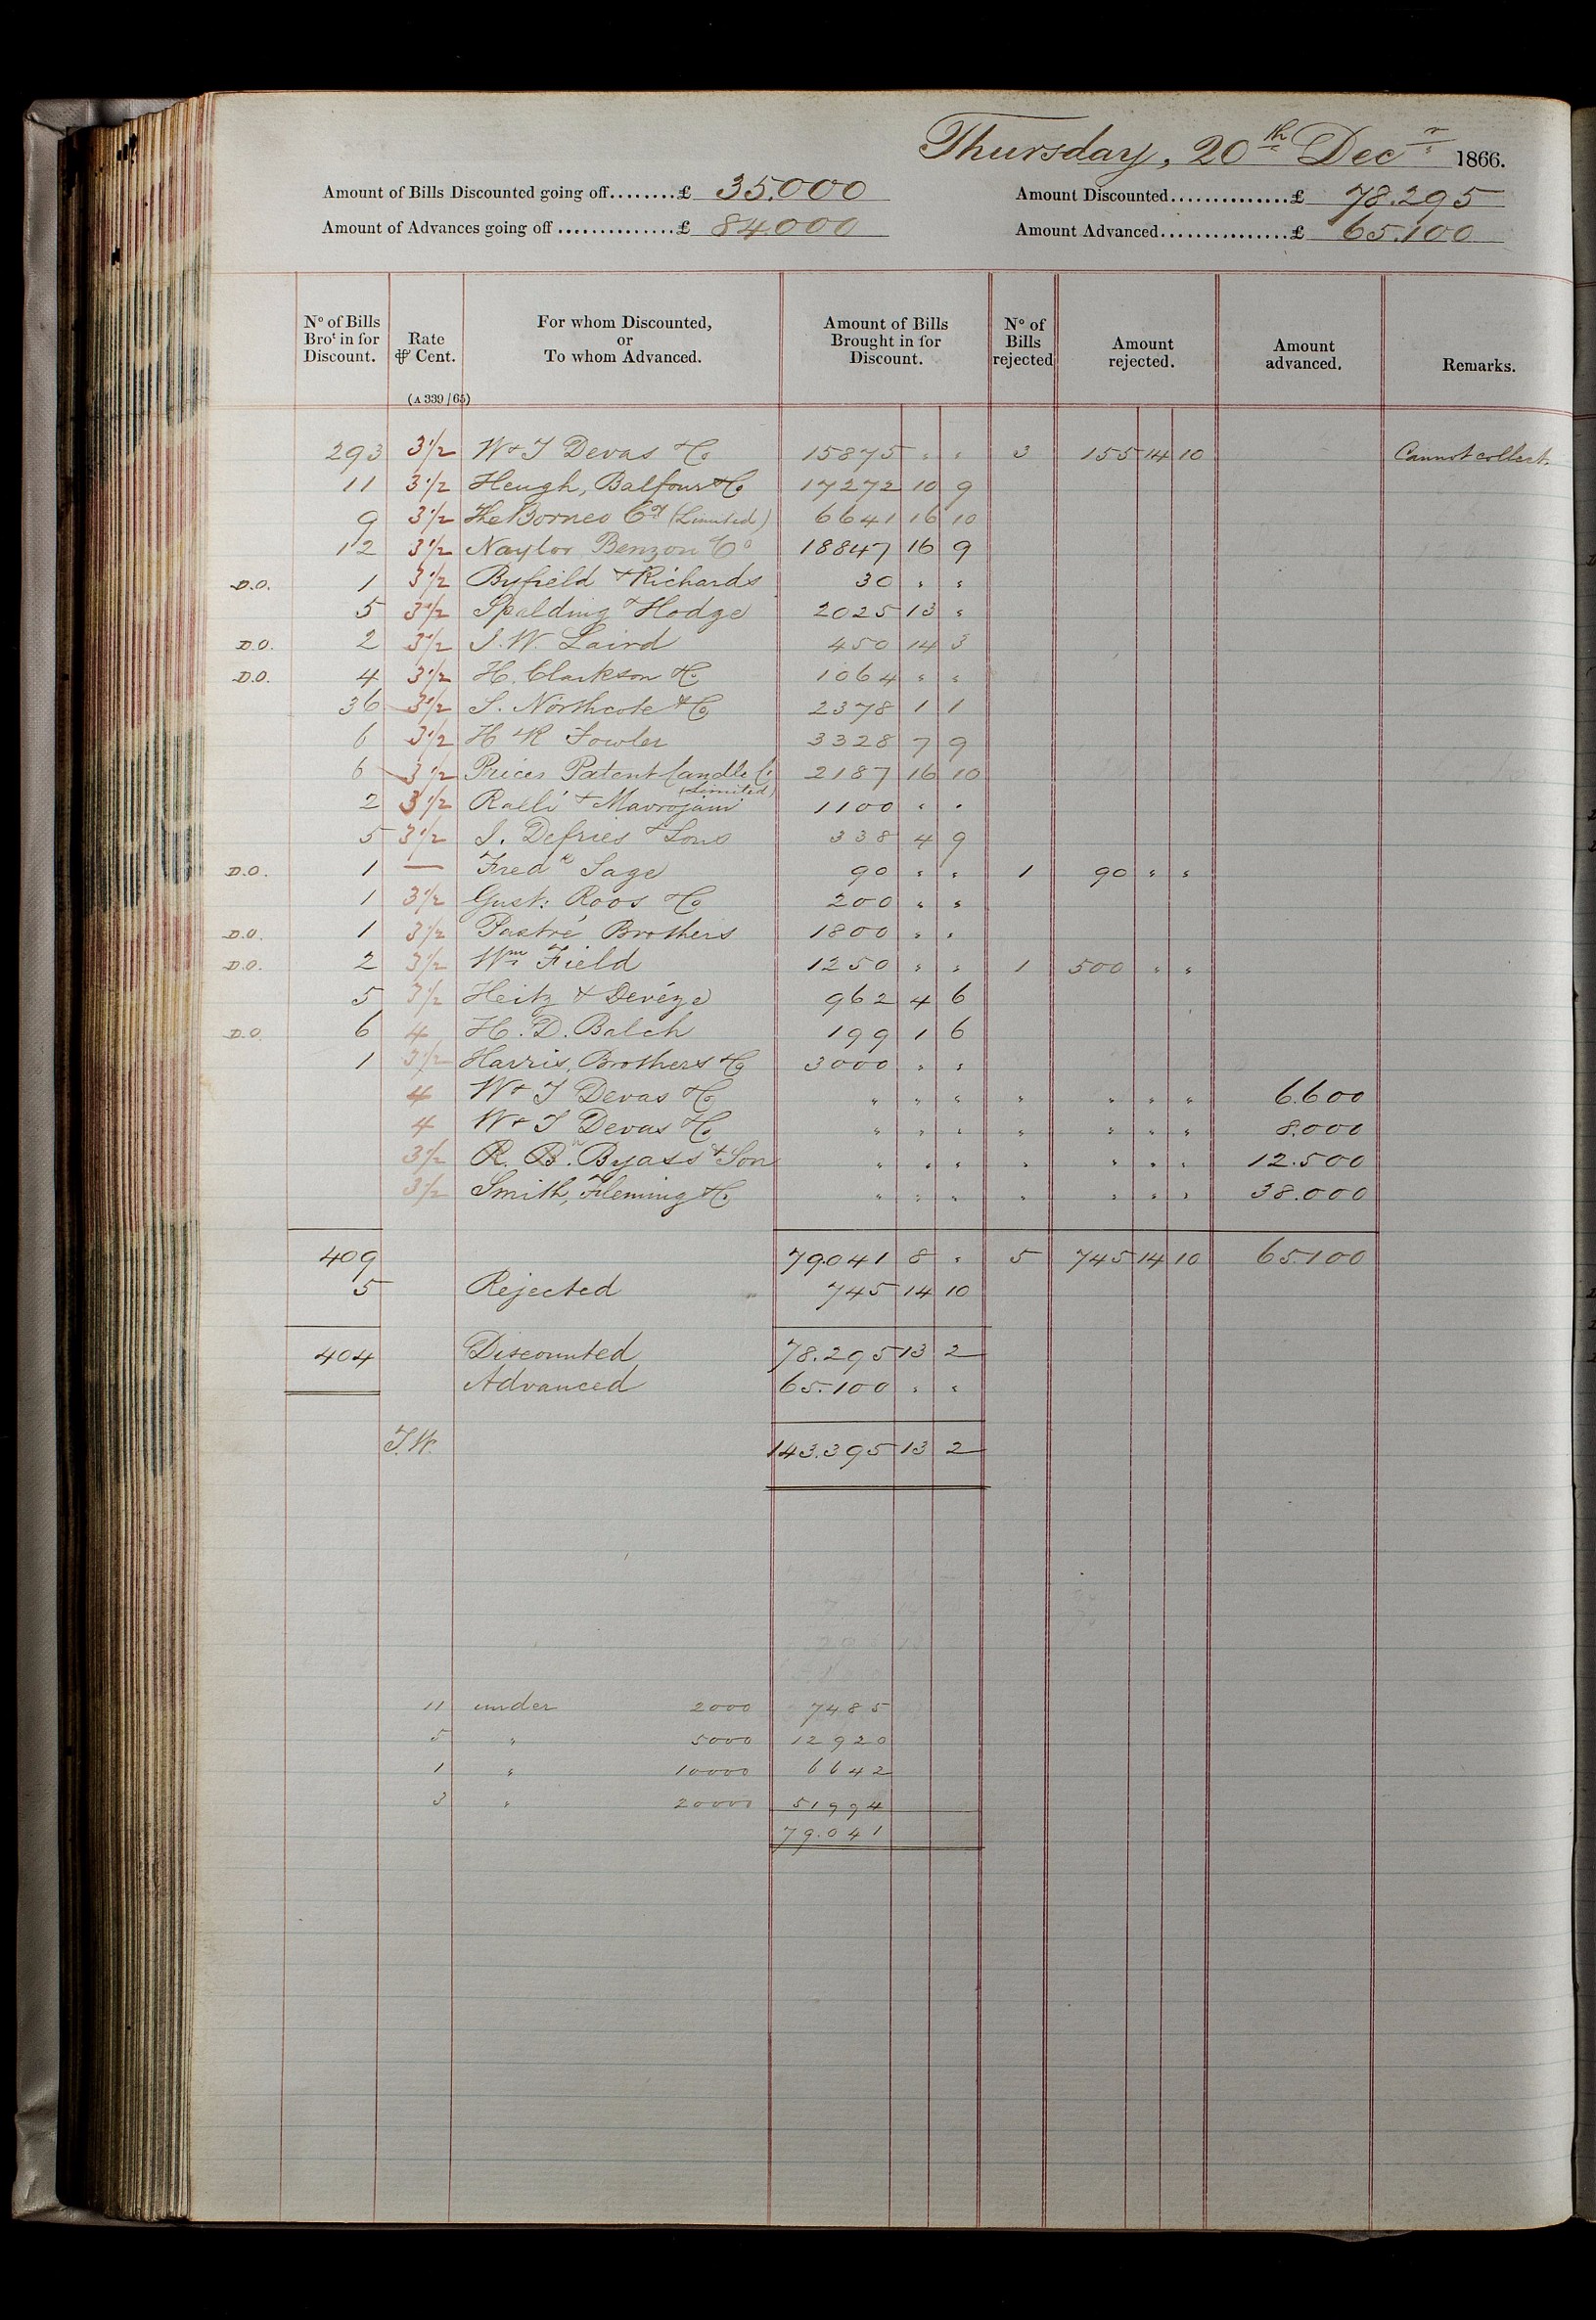 Thursday, 20th Decr 1866.
Amount of Bills Discounted going off........£ 35.000 Amount Discounted..............£ 78.295
Amount of Advances going off..............£ 84.000 Amount Advanced...............£ 65.100
No of Bills Brot in for Discount. Rate ⅌ Cent. (A 339/65) For whom Discounted, or To whom Advanced. Amount of Bills Brought in for Discount. No of Bills rejected Amount rejected. Amount advanced. Remarks.
293 3 1/2 W & T Devas & Co 15875 " " 3 155 14 10 Cannot collect.
11 3 1/2 Heugh, Balfour & Co 17272 10 9
9 3 1/2 The Borneo Coy (Limited) 6641 16 10
12 3 1/2 Naylor Benzon & Co 18847 16 9
D.O. 1 3 1/2 Byfield & Richards 30 " "
5 3 1/2 Spalding & Hodge 2025 13 "
D.O. 2 3 1/2 J. W. Laird 450 14 3
D.O. 4 3 1/2 H. Clarkson & Co 1064 " "
36 3 1/2 S. Northcote & Co 2378 1 1
6 3 1/2 H & R Fowler 3328 7 9
6 3 1/2 Prices Patent Candle Co (Limited) 2187 16 10
2 3 1/2 Ralli & Mavrojani 1100 " "
5 3 1/2 J. Defries & Sons 338 4 9
D.O. 1 — Fredk Sage 90 " " 1 90 " "
1 3 1/2 Gust: Roos & Co 200 " "
D.O. 1 3 1/2 Pastré Brothers 1800 " "
D.O. 2 3 1/2 Wm Field 1250 " " 1 500 " "
5 3 1/2 Heitz & Devéze 962 4 6
D.O. 6 4 H. D. Balch 199 1 6
1 3 1/2 Harris, Brothers & Co 3000 " "
4 W & T Devas & Co " " " " " " " 6.600
4 W & T Devas & Co " " " " " " " 8.000
3 1/2 R. B. Byass & Son " " " " " " " 12.500
3 1/2 Smith, Fleming & Co " " " " " " " 38.000
409 79.041 8 " 5 745 14 10 65.100
5 Rejected 745 14 10
404 Discounted 78.295 13 2
Advanced 65.100 " "
T.W. 143.395 13 2
11 under 2000 7485
5 " 5000 12920
1 " 10000 6642
3 " 20000 51994
79.041